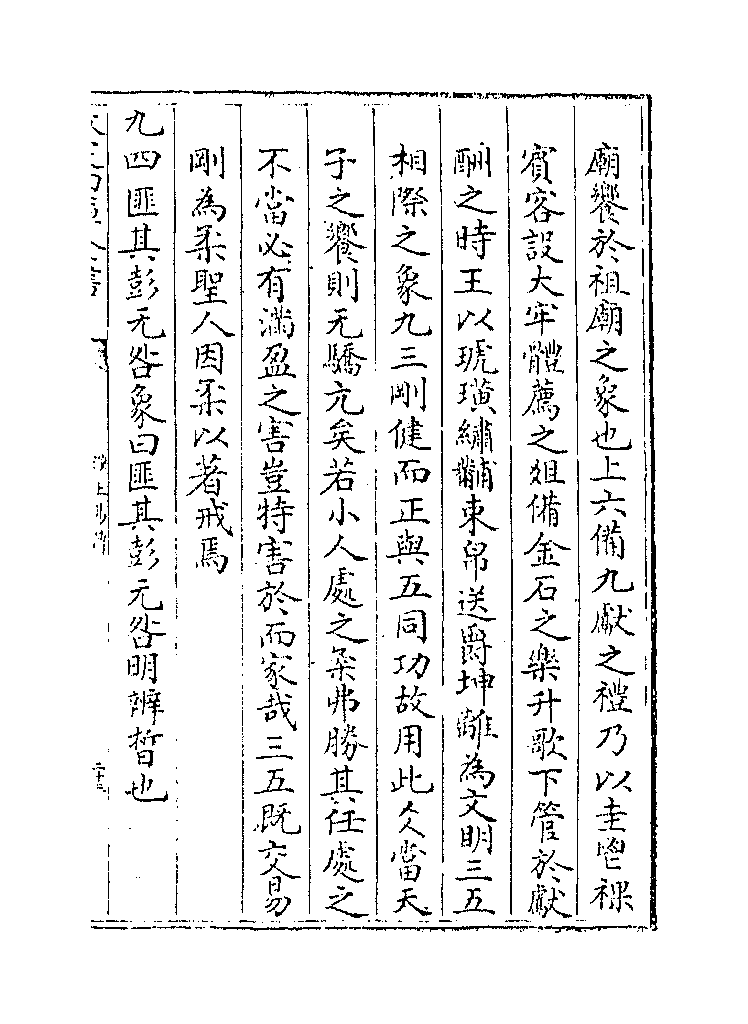 廟饗於祖廟之象也上六備九獻之禮乃以圭鬯祼
賓客設大牢體薦之俎備金石之樂升歌下管於獻
酬之時王以琥璜繡黼束帛送爵坤離為文明三五
相際之象九三剛健而正與五同功故用此爻當天
子之饗則无驕亢矣若小人處之柔弗勝其任處之
不當必有滿盈之害豈特害於而家哉三五既交易
剛為柔聖人因柔以著戒焉
九四匪其彭无咎象曰匪其彭无咎明辨晳也